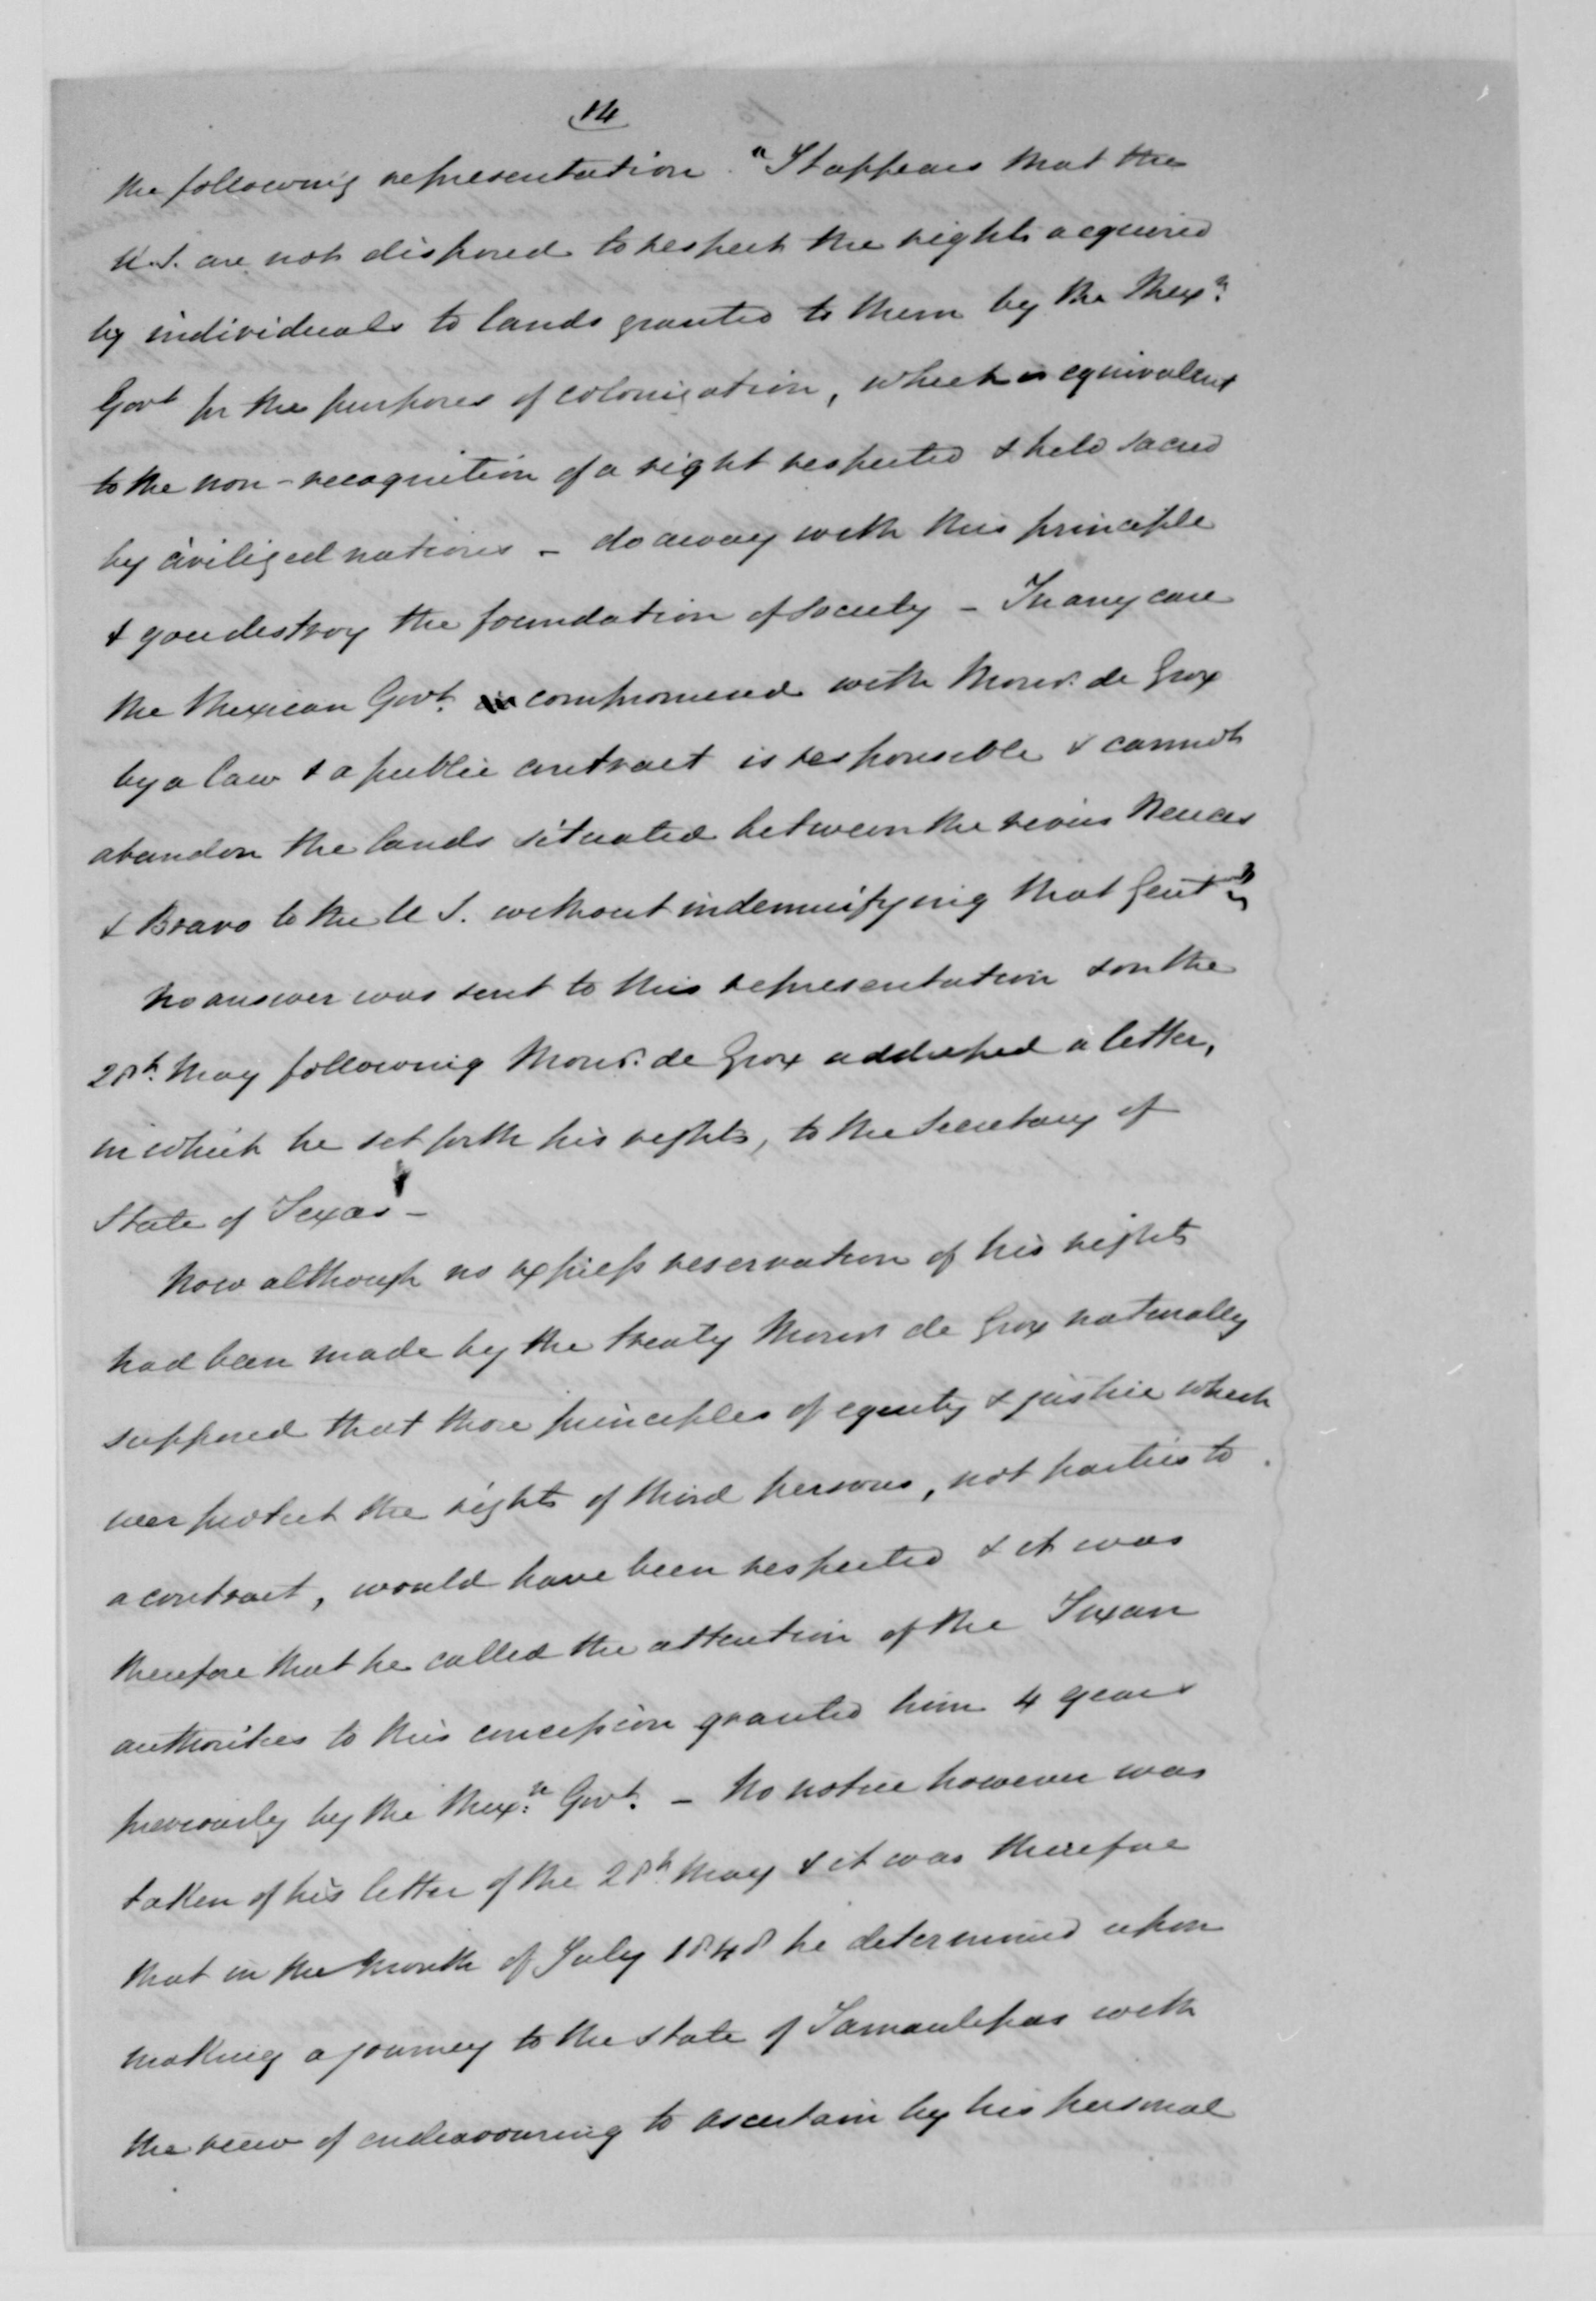 14
the following representation. "It appears that the
U.S. are not disposed to respect the rights acquired
by individuals to lands granted to them by the Mexn.
Govt for the purposes of colonization, which is equivalent
to the non-recognition of a right respected & held sacred
by civilized nations - do away with this principle
& you destroy the foundation of society - In any case
the Mexican Govt. compromised with Monsr. de Grox
by a law & a public contract is responsible & cannot
abandon the lands situated between the rivers Neuces
& Bravo to the U S. without indemnifying that Gentn"
No answer was sent to this representation & on the
28th. May following Monsr. de Grox addressed a letter,
in which he set forth his rights, to the Secretary of
State of Texas -
Now although no express reservation of his rights
had been made by the treaty Monsr de Grox naturally
supposed that those principles of equity & justice which
ever protect the rights of third persons, not parties to
a contract, would have been respected & it was
therefore that he called the attention of the Texan
authorities to this concession granted him 4 years
previously by the Mex:n Govt. - No notice however was
taken of his letter of the 28th May & it was therefore
that in the month of July 1848 he determined upon
making a journey to the state of Tamaulipas with
the view of endeavouring to ascertain by his personal